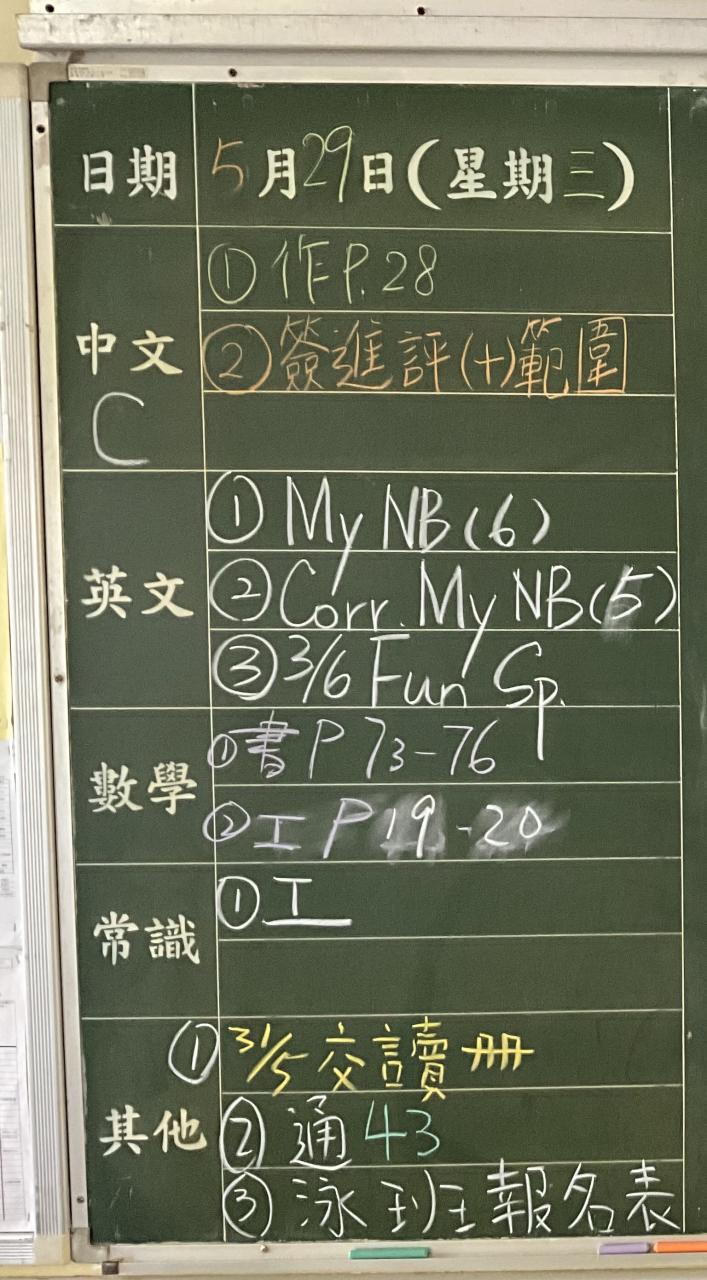 日期 5月29日(星期三)
中文 ① 作P.28
② 簽進評(十)範圍
C
英文 ① My NB(6)
② Corr. My NB(5)
③ 3/6 Fun Sp.
數學 ① 書 P 73-76
② 工 P 19-20
常識 ① 工
其他 ① 31/5 交讀冊
② 通43
③ 泳班報名表